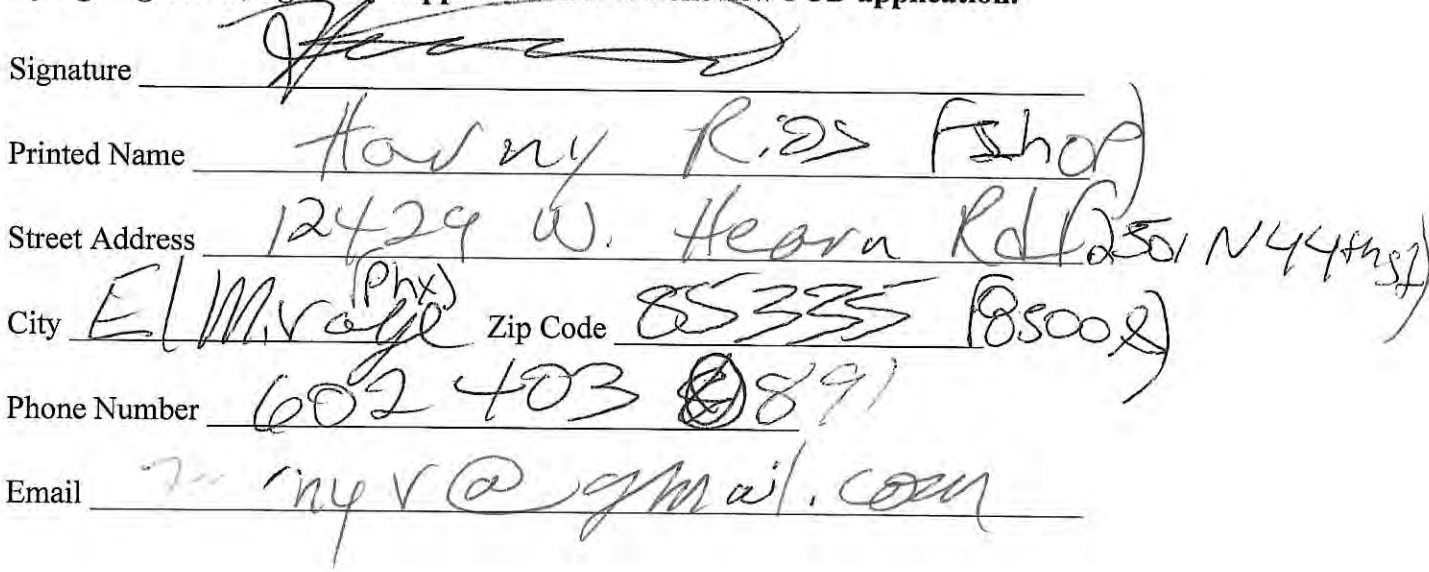 PUD application.
Signature
Printed Name Harny Rios (Shop)
Street Address 12429 W. Hearn Rd (2501 N 44th st)
City El Mirage (Phx) Zip Code 85335 (85008)
Phone Number 602 403 8891
Email nyr@gmail.com